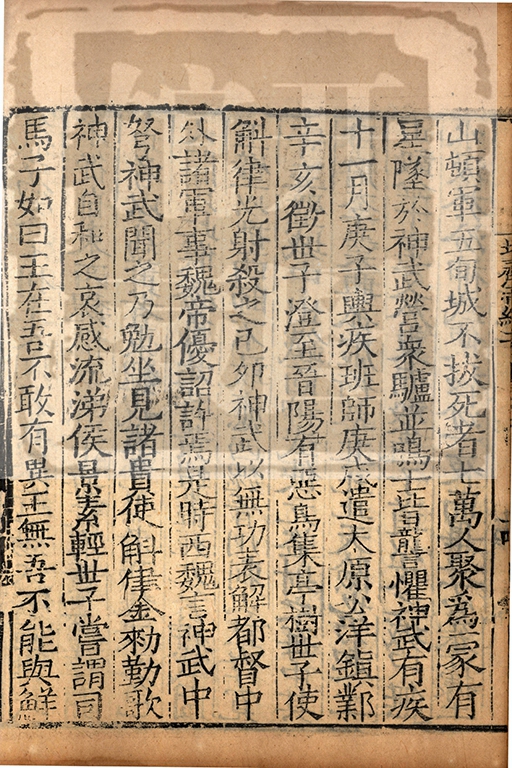 山頓軍五旬城不拔死者七萬人聚爲一冢有
星墜於神武營衆驢並鳴士皆讋懼神武有疾
十一月庚子輿疾班師庚戌遣太原公洋鎮鄴
辛亥徵世子澄至晉陽有惡鳥集亭樹世子使
斛律光射殺之己卯神武以無功表解都督中
外諸軍事魏帝優詔許焉是時西魏言神武中
弩神武聞之乃勉坐見諸貴使斛律金勑勤歌
神武自和之哀感流涕侯景素輕世子嘗謂司
馬子如曰王在吾不敢有異王無吾不能與鮮